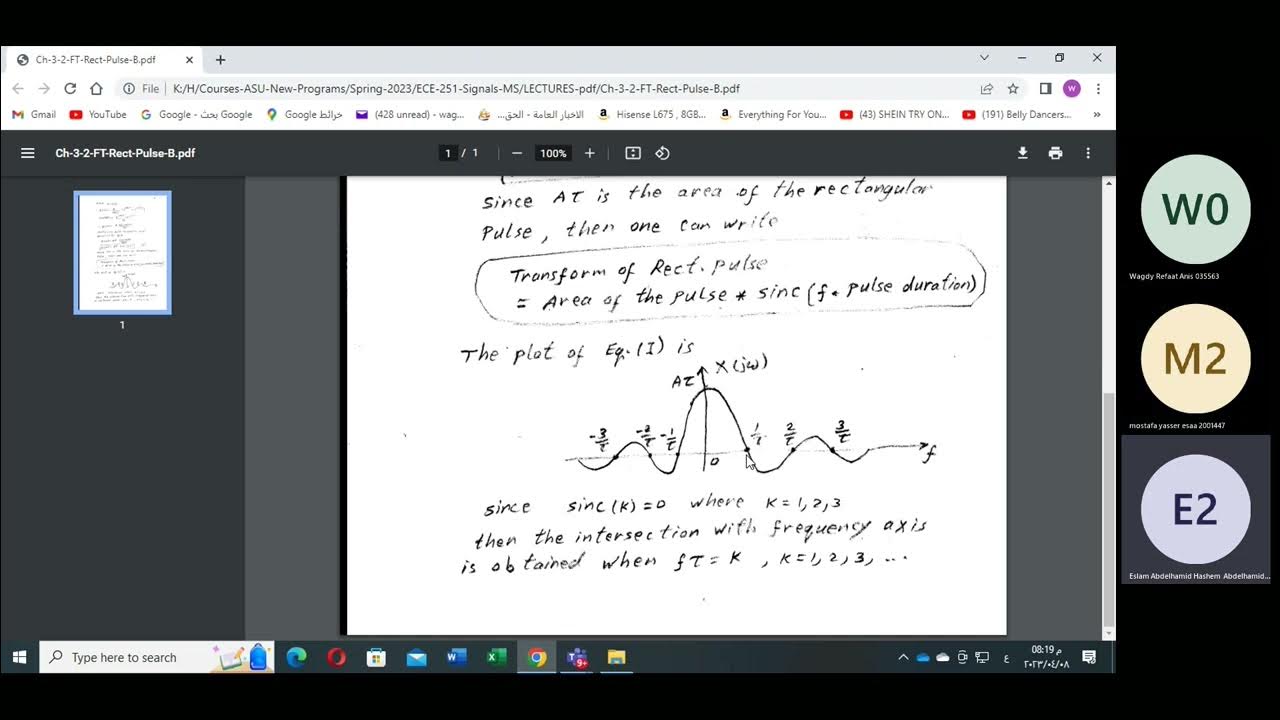 Ch-3-2-FT-Rect-Pulse-B.pdf
File
K:/H/Courses-ASU-New-Programs/Spring-2023/ECE-251-Signals-MS/LECTURES-pdf/Ch-3-2-FT-Rect-Pulse-B.pdf
W
Gmail
YouTube
Google - بحث Google
خرائط Google
(428 unread) - wag...
الاخبار العامة - الحق...
Hisense L675 , 8GB...
Everything For You...
(43) SHEIN TRY ON...
(191) Belly Dancers...
»
Ch-3-2-FT-Rect-Pulse-B.pdf
1 / 1
100%
1
since Aτ is the area of the rectangular
pulse, then one can write
Transform of Rect. pulse
= Area of the pulse * sinc (f • pulse duration)
The plot of Eq. (I) is
X(jω)
Aτ
-3/τ -2/τ -1/τ 1/τ 2/τ 3/τ
0
f
since sinc(k) = 0 where k = 1, 2, 3
then the intersection with frequency axis
is obtained when fτ = k , k = 1, 2, 3, ...
W0
Wagdy Refaat Anis 035563
M2
mostafa yasser esaa 2001447
E2
Eslam Abdelhamid Hashem Abdelhamid...
Type here to search
9+
ع
08:19 م
٢٠٢٣/٠٤/٠٨